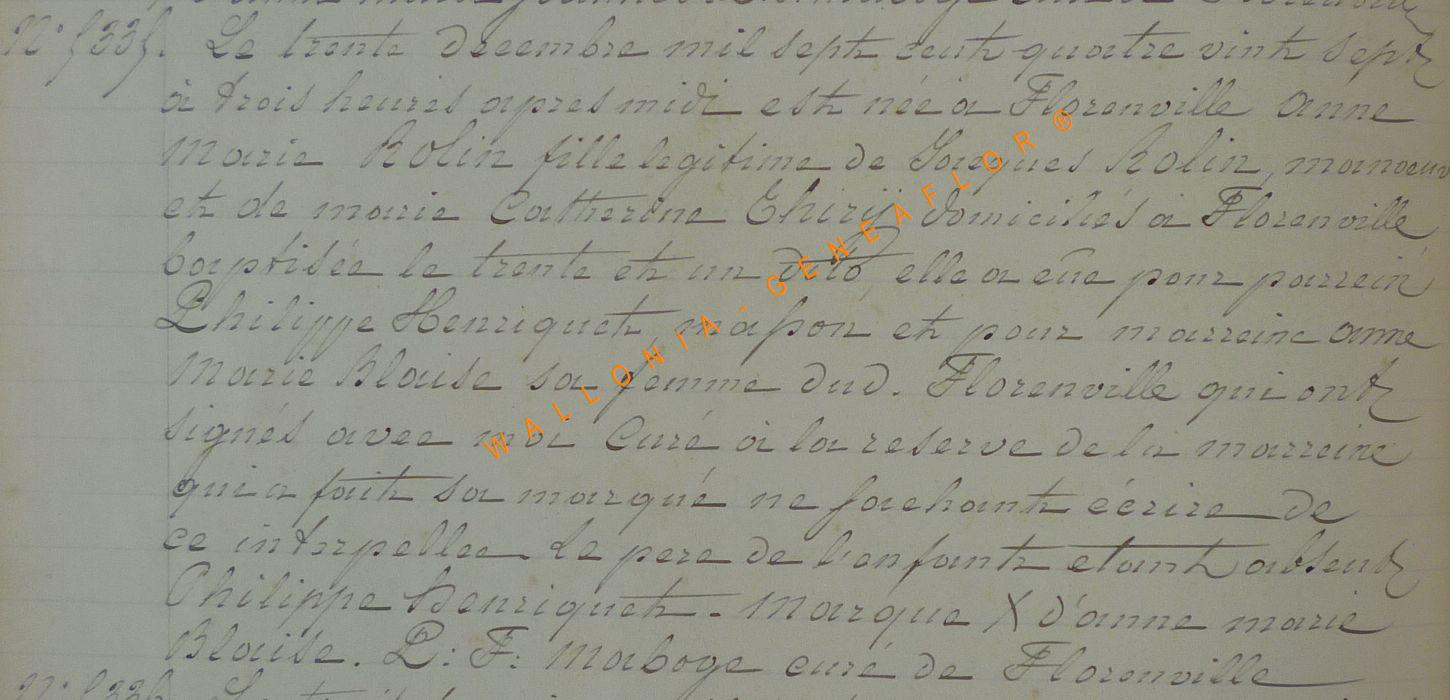 N° 1335. Le trente decembre mil sept cent quatre vint sept
à trois heures apres midi est née a Florenville anne
Marie Rolin fille legitime de Jacques Rolin, manoeuv
et de marie Catherine Thirij domiciliés a Florenville
baptisée le trente et un dito, elle a eûe pour parrein
Philippe Henriquet, masson et pour marreine anne
Marie Blaise sa femme dud. Florenville qui ont
signés avec moi Curé à la reserve de la marreine
qui a fait sa marque ne sachant écrire de
ce interpellee. Le pere de l'enfant etant absent
Philippe Henriquet. Marque X d'anne marie
Blaise. P: F: Maboge curé de Florenville
WALLONIA - GENEAFLOR ®